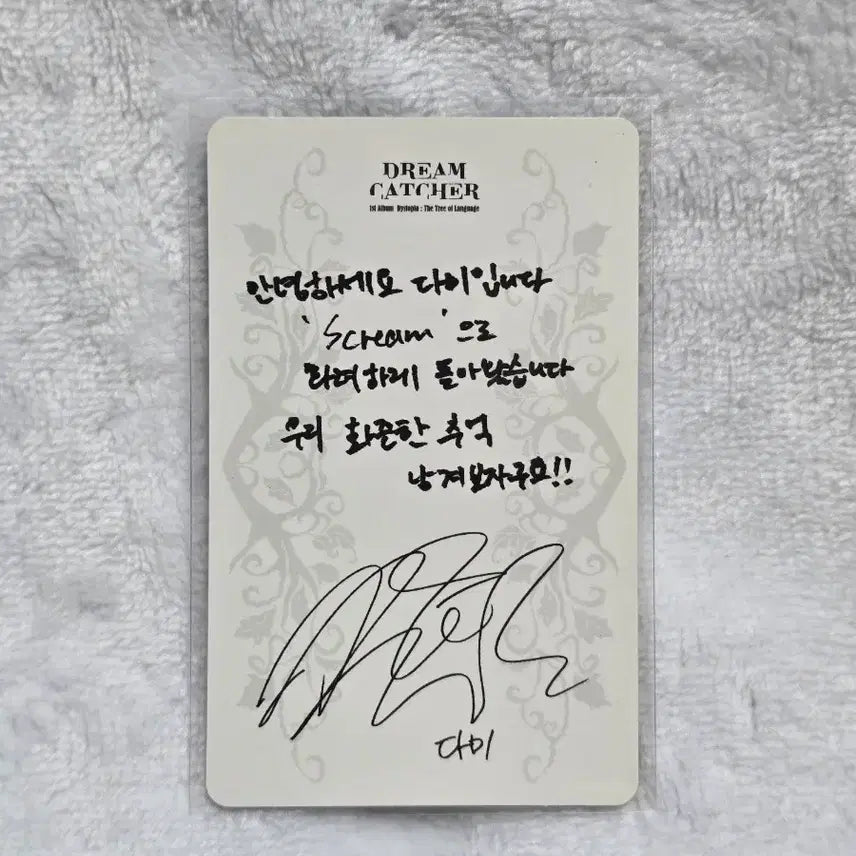 DREAM
CATCHER
1st Album Dystopia : The Tree of Language
안녕하세요 다미입니다
'Scream'으로
화려하게 돌아왔습니다
우리 화끈한 추억
남겨보자구요!!
다미